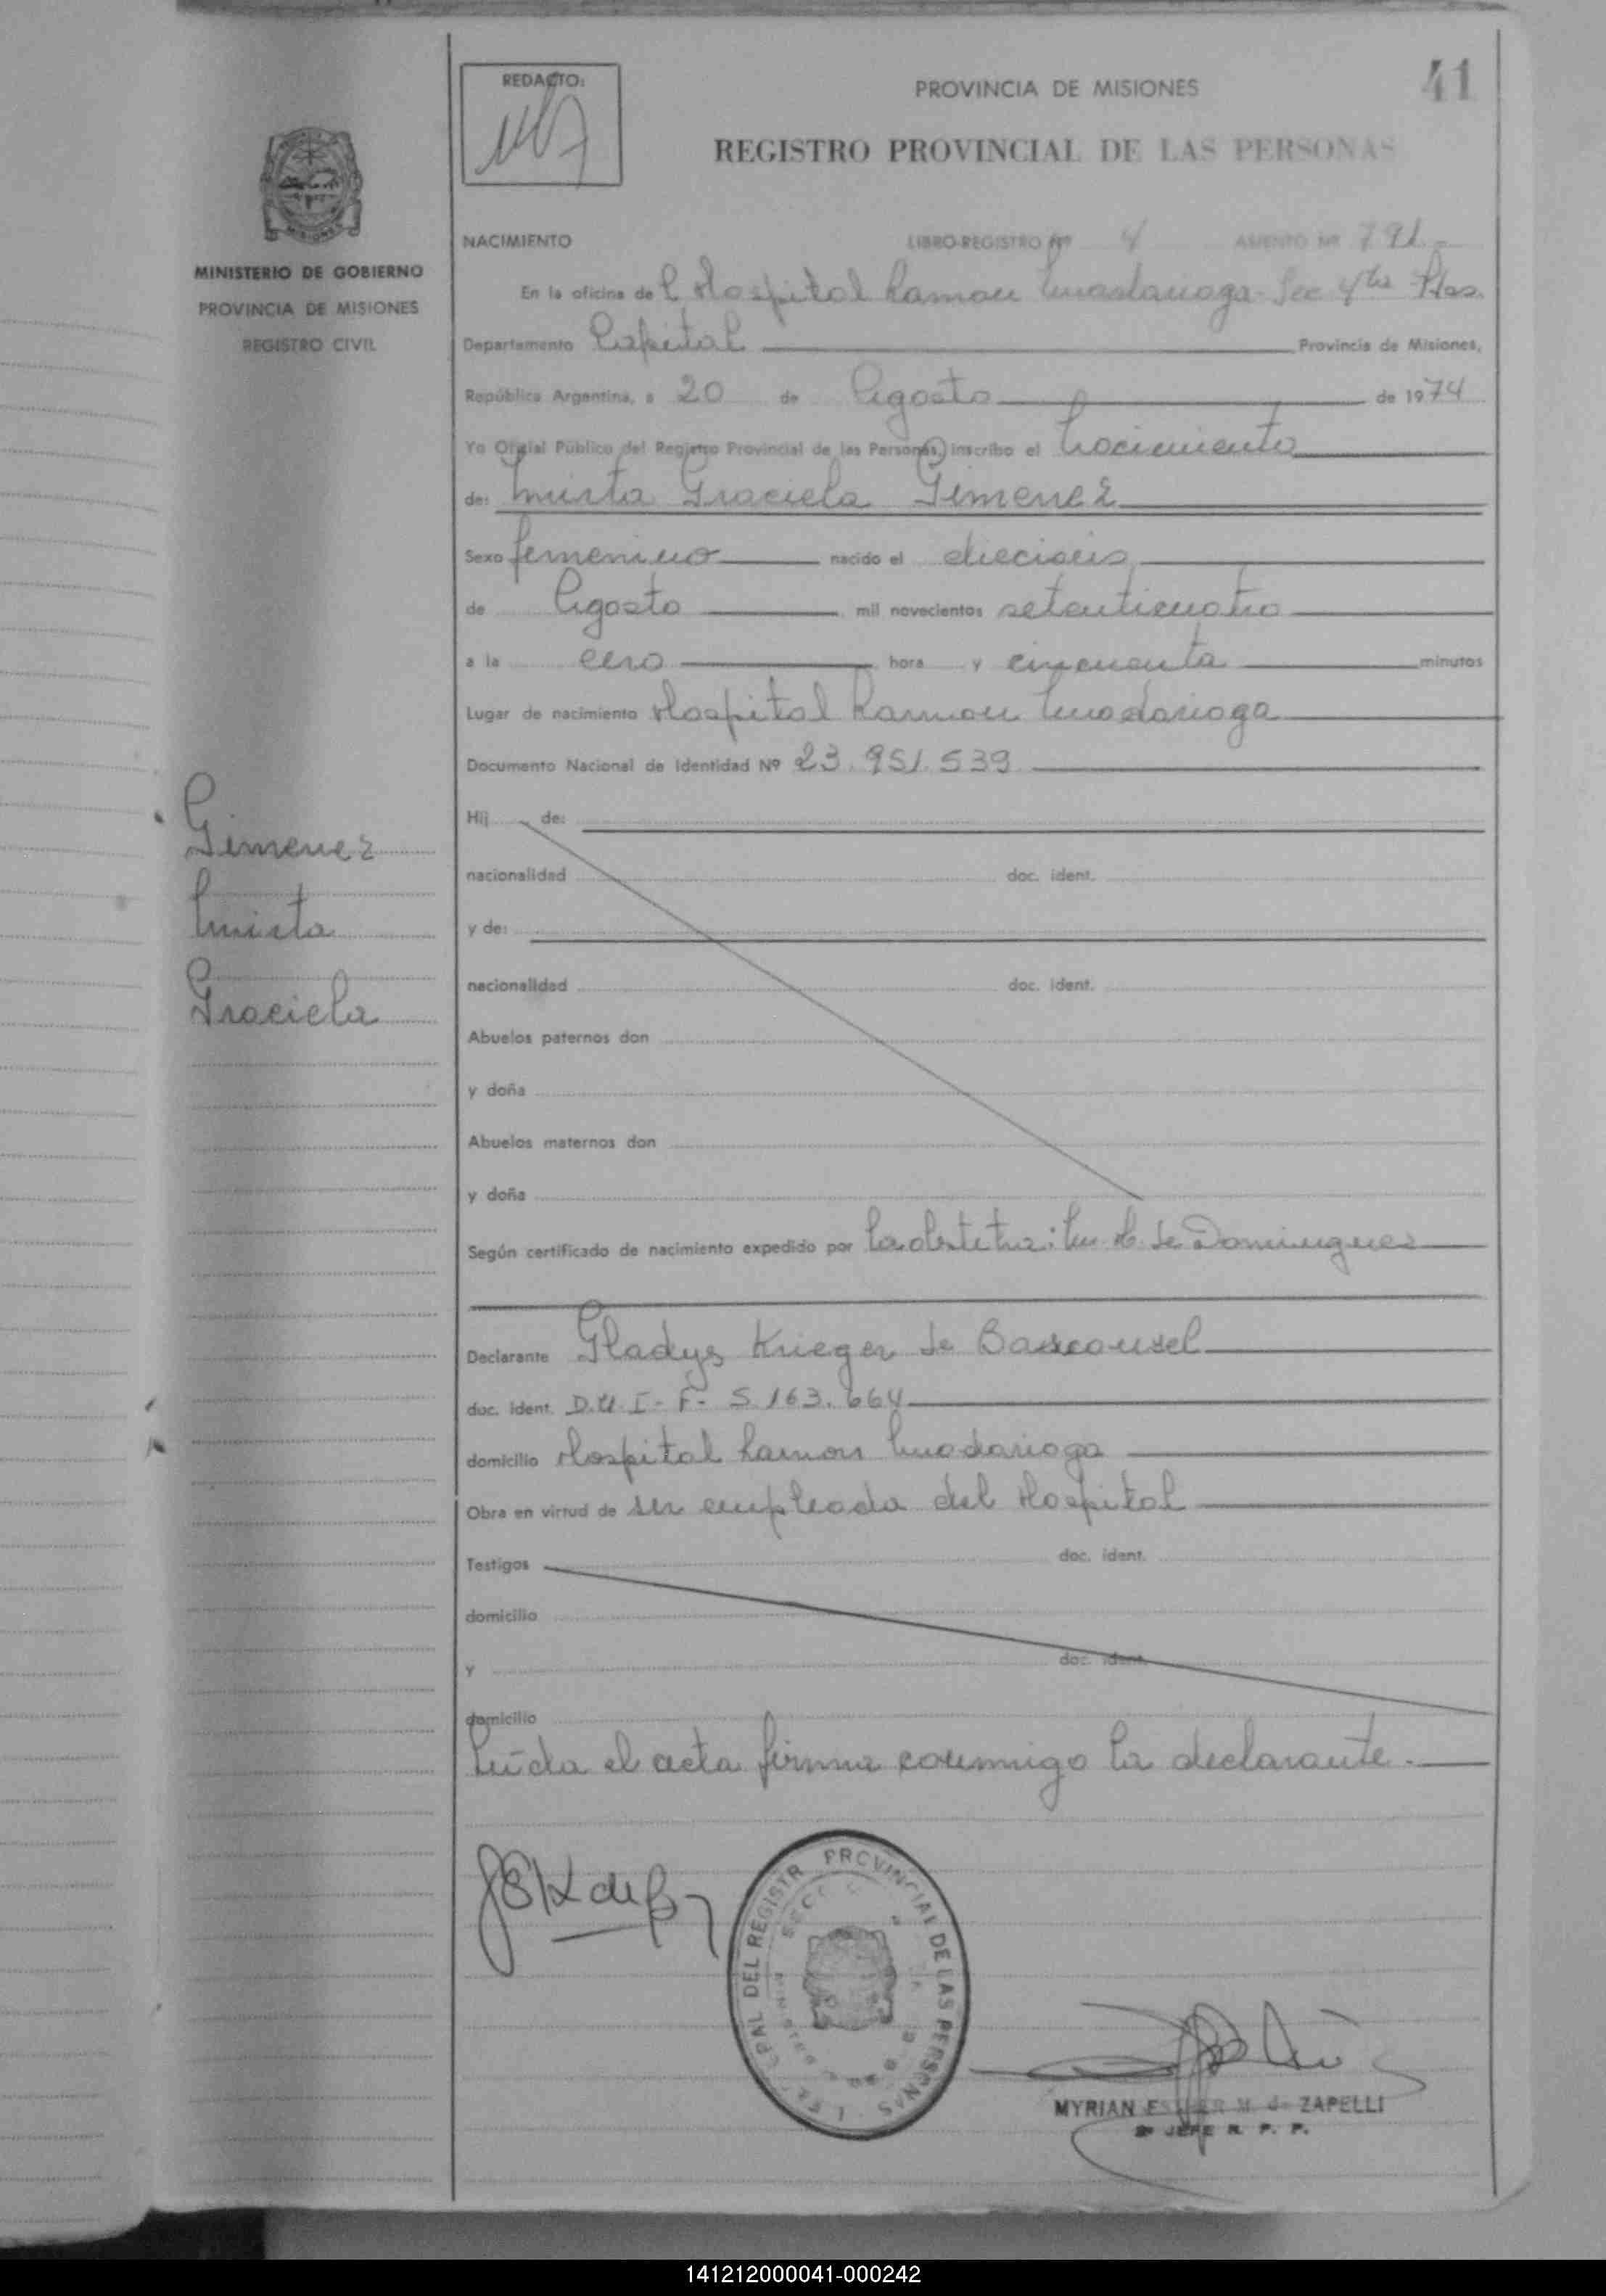 41
REDACTO:
PROVINCIA DE MISIONES
REGISTRO PROVINCIAL DE LAS PERSONAS
MINISTERIO DE GOBIERNO
PROVINCIA DE MISIONES
REGISTRO CIVIL
NACIMIENTO LIBRO-REGISTRO Nº 4 ASIENTO Nº 791.-
En la oficina de l Hospital Ramon Madariaga - Sec 4ta Pdas.
Departamento Capital Provincia de Misiones,
República Argentina, a 20 de Agosto de 1974
Yo Oficial Público del Registro Provincial de las Personas, inscribo el Nacimiento
de: Mirta Graciela Gimenez
Sexo femenino nacido el dieciseis
de Agosto mil novecientos setenticuatro
a la cero hora y cincuenta minutos
Lugar de nacimiento Hospital Ramon Madariaga
Documento Nacional de Identidad Nº 23.951.539
Gimenez
Mirta
Graciela
Hij de:
nacionalidad doc. ident.
y de:
nacionalidad doc. ident.
Abuelos paternos don
y doña
Abuelos maternos don
y doña
Según certificado de nacimiento expedido por la obstetra: M. H. de Dominguez
Declarante Gladys Krieger de
doc. ident. D.U.I-F- 5.163.664
domicilio Hospital Ramon Madariaga
Obra en virtud de ser empleada del Hospital
Testigos doc. ident.
domicilio
y doc. ident.
domicilio
Leída el acta firma conmigo la declarante.
DEL REGISTR PROVINCIAL DE LAS PERSONAS
MYRIAN ESTHER M. de ZAPELLI
2º JEFE R. P. P.
141212000041-000242